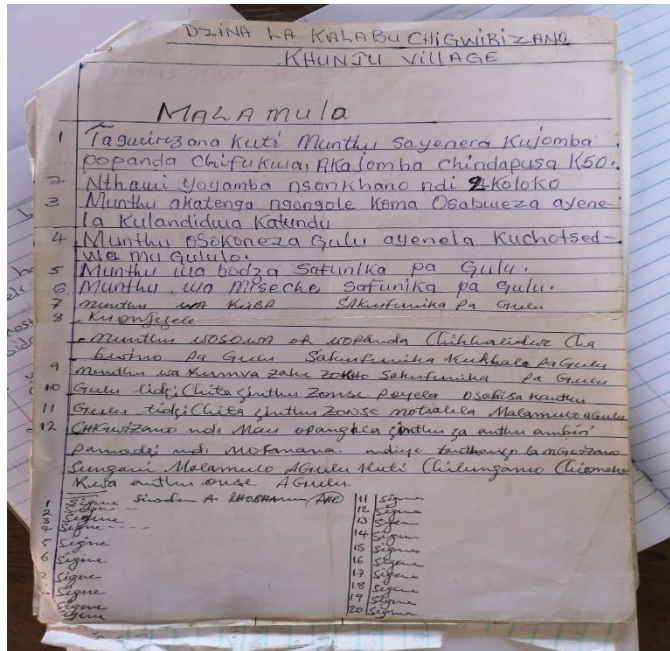 DZINA LA KALABU CHIGWIRIZANO
KHUNJU VILLAGE
MALAMULO
1 Tagwirizana kuti Munthu sayenera kujomba
popanda chifukwa, Akajomba chindapusa K50.
2 Nthawi yoyamba nsonkhano ndi 2koloko
3 Munthu akatenga ngongole koma Osabweza ayene-
la Kulandidwa Katundu
4 Munthu osokoneza Gulu ayenela Kuchotsed-
wa mu Gululo.
5 Munthu wa bodza Safunika pa Gulu.
6 Munthu wa Miseche Safunika pa Gulu.
7 Munthu WA KUBA SAkufunika Pa Gulu
8 Kuonjezela
- Munthu WOSOWA OR WOPANDA Chikhalidwe Cha
bwino Pa Gulu Sakufunika Kukhala Pa Gulu
9 Munthu wa Kumva Zake ZOKHO Sakufunika Pa Gulu
10 Gulu lidziChita Zinthu Zonse poyela Osabisa Kanthu
11 Gulu lidziChita Zinthu Zonse motsatila Malamulo AGulu
12 CHIGWIZANO ndi Mau opangila Zinthu Za anthu ambiri
pamodzi ndi Mofanana. ndiye
Sungani Malamulo AGulu Kuti Chilungamo Chioneke
Kwa anthu onse AGulu.
1 Signe
2
3 Signe
4 Signe ----
5 Signe
6 Signe
7 Signe
Signe
Signe
Signe
11 Signe
12 Signe
13 Signe
14 Signe
15 Signe
16 Signe
17 Signe
18 Signe
19 Signe
20 Signe